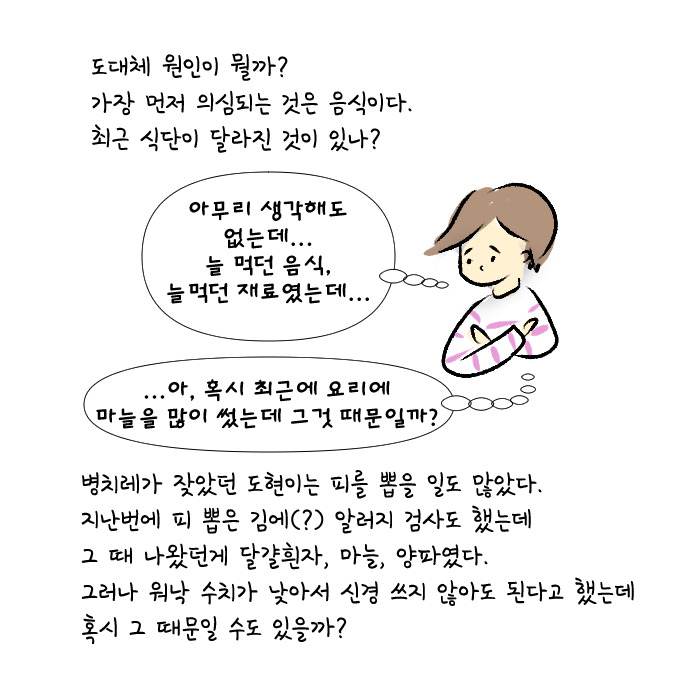 도대체 원인이 뭘까?
가장 먼저 의심되는 것은 음식이다.
최근 식단이 달라진 것이 있나?
아무리 생각해도
없는데...
늘 먹던 음식,
늘먹던 재료였는데...
...아, 혹시 최근에 요리에
마늘을 많이 썼는데 그것 때문일까?
병치레가 잦았던 도현이는 피를 뽑을 일도 많았다.
지난번에 피 뽑은 김에(?) 알러지 검사도 했는데
그 때 나왔던게 달걀흰자, 마늘, 양파였다.
그러나 워낙 수치가 낮아서 신경 쓰지 않아도 된다고 했는데
혹시 그 때문일 수도 있을까?